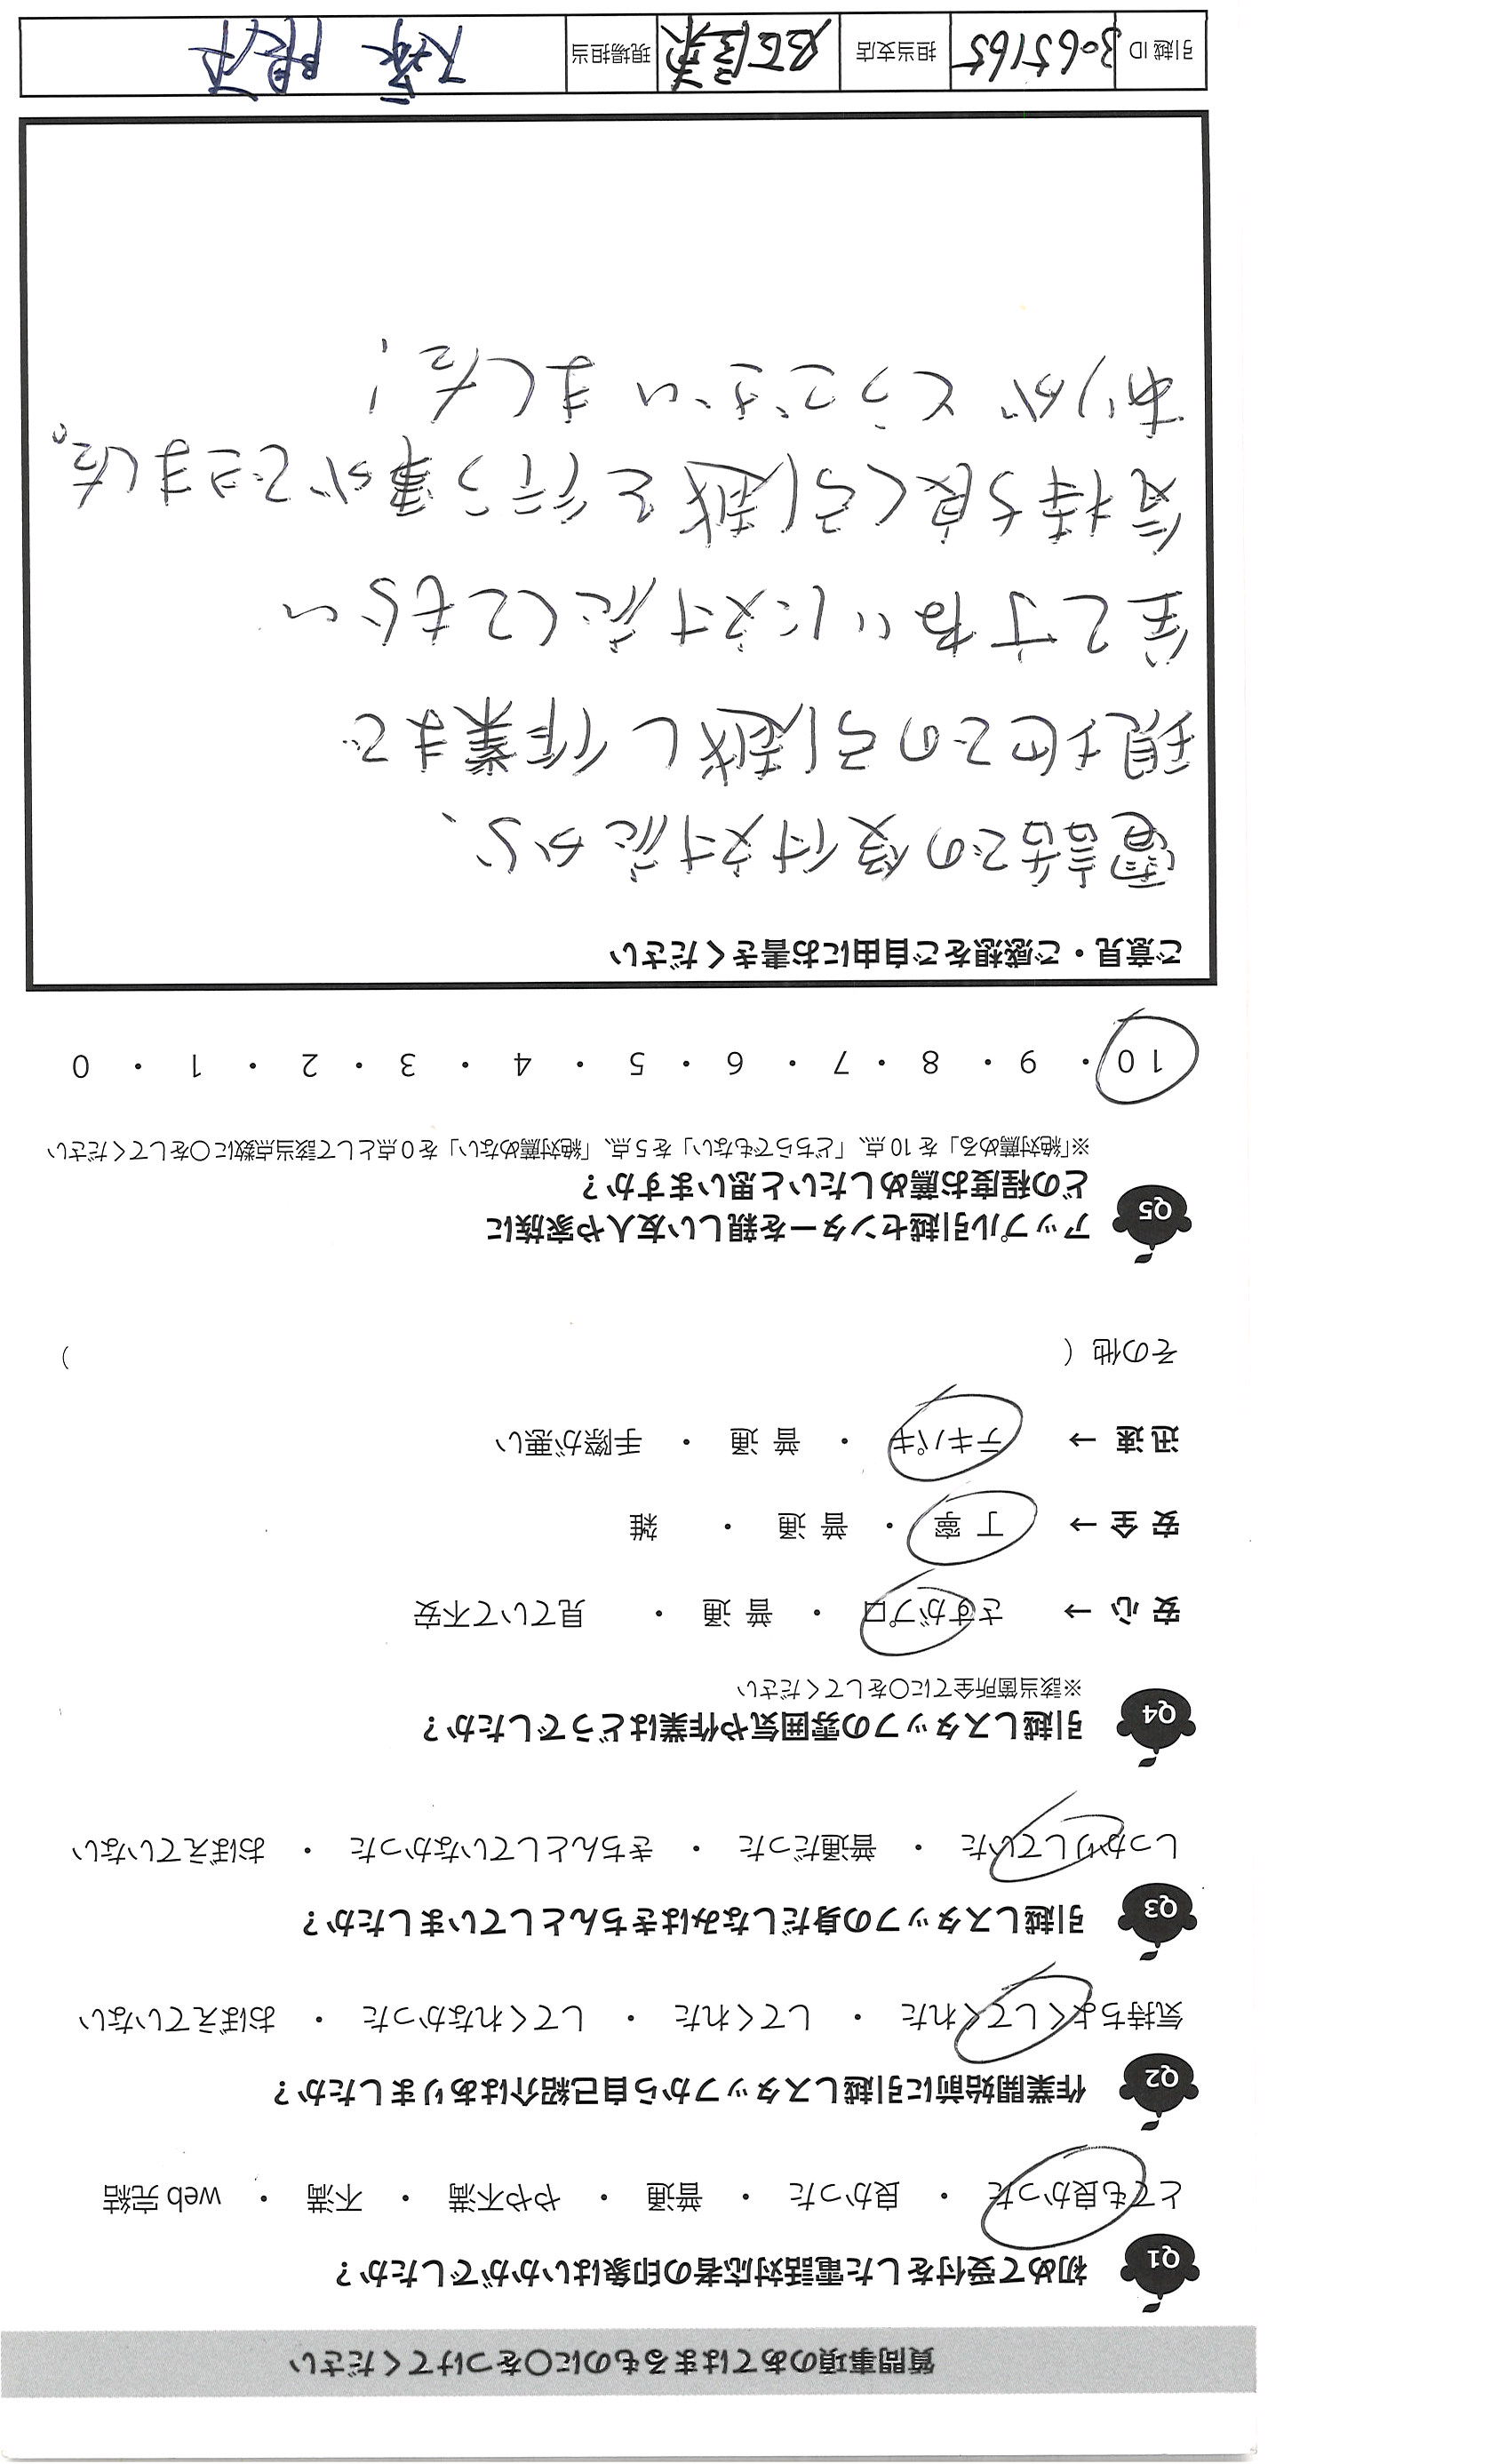 質問事項のあてはまるものに〇をつけてください
Q1 初めて受付をした電話対応者の印象はいかがでしたか？
とても良かった ・ 良かった ・ 普通 ・ やや不満 ・ 不満 ・ web 完結
Q2 作業開始前に引越しスタッフから自己紹介はありましたか？
気持ちよくしてくれた ・ してくれた ・ してくれなかった ・ おぼえていない
Q3 引越しスタッフの身だしなみはきちんとしていましたか？
しっかりしていた ・ 普通だった ・ きちんとしていなかった ・ おぼえていない
Q4 引越しスタッフの雰囲気や作業はどうでしたか？
※該当箇所全てに〇をしてください
安 心 → さすがプロ ・ 普 通 ・ 見ていて不安
安 全 → 丁 寧 ・ 普 通 ・ 雑
迅 速 → テキパキ ・ 普 通 ・ 手際が悪い
その他（ ）
Q5 アップル引越センターを親しい友人や家族に
どの程度お薦めしたいと思いますか？
※「絶対薦める」を 10 点、「どちらでもない」を 5 点、「絶対薦めない」を 0 点として該当点数に〇をしてください
10 ・ 9 ・ 8 ・ 7 ・ 6 ・ 5 ・ 4 ・ 3 ・ 2 ・ 1 ・ 0
ご意見・ご感想をご自由にお書きください
電話での受付対応から、
現地での引越し作業まで
全てていねいに対応してもらい
気持ち良く引越を行う事ができました。
ありがとうございました！
引越 ID 3065165 担当支店 現場担当